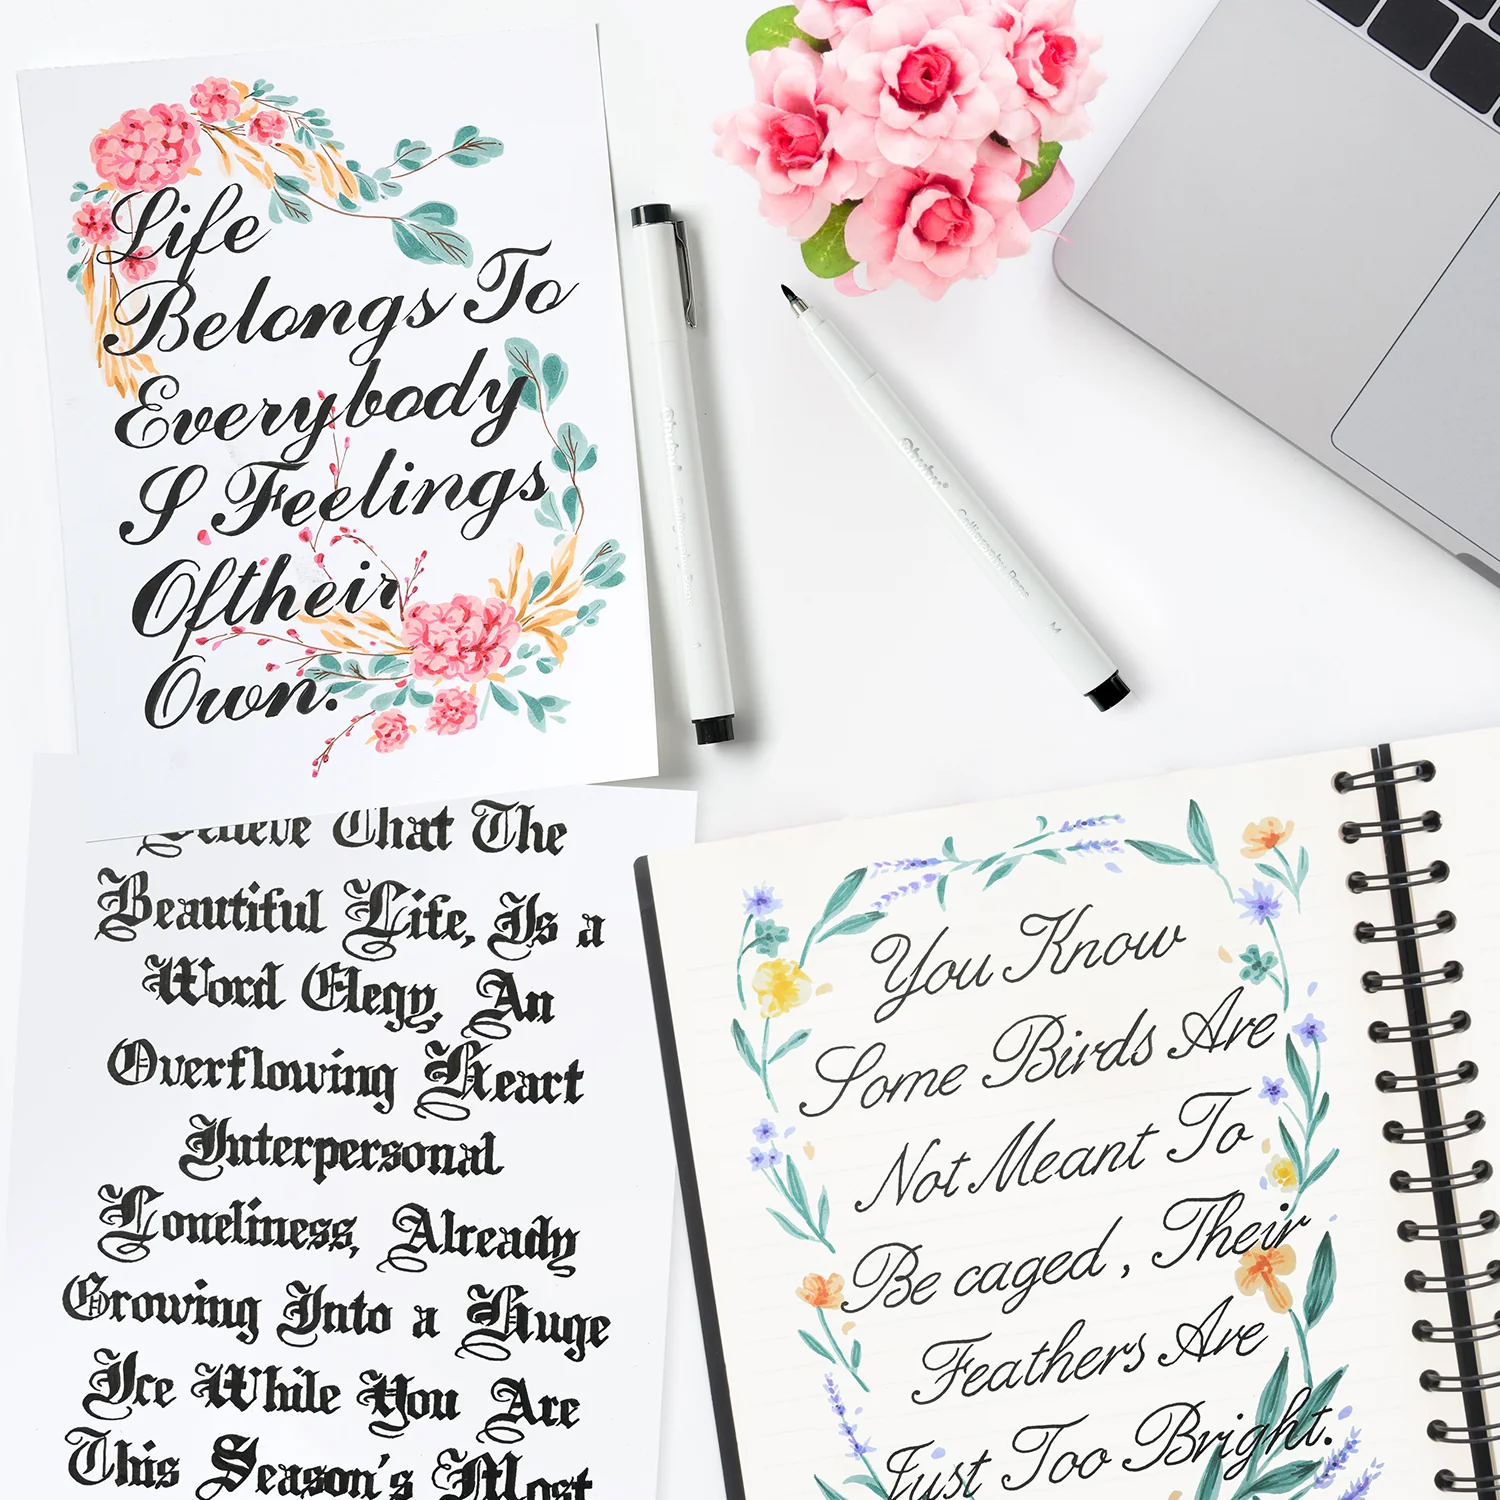 Life
Belongs To
Everybody
I Feelings
Oftheir
Own.
Believe That The
Beautiful Life, Is a
Word Elegy, An
Overflowing Heart
Interpersonal
Loneliness, Already
Growing Into a Huge
Ice While You Are
This Season's Most
You Know
Some Birds Are
Not Meant To
Be caged, Their
Feathers Are
Just Too Bright.
Ohuhu®
Calligraphy Pens
M